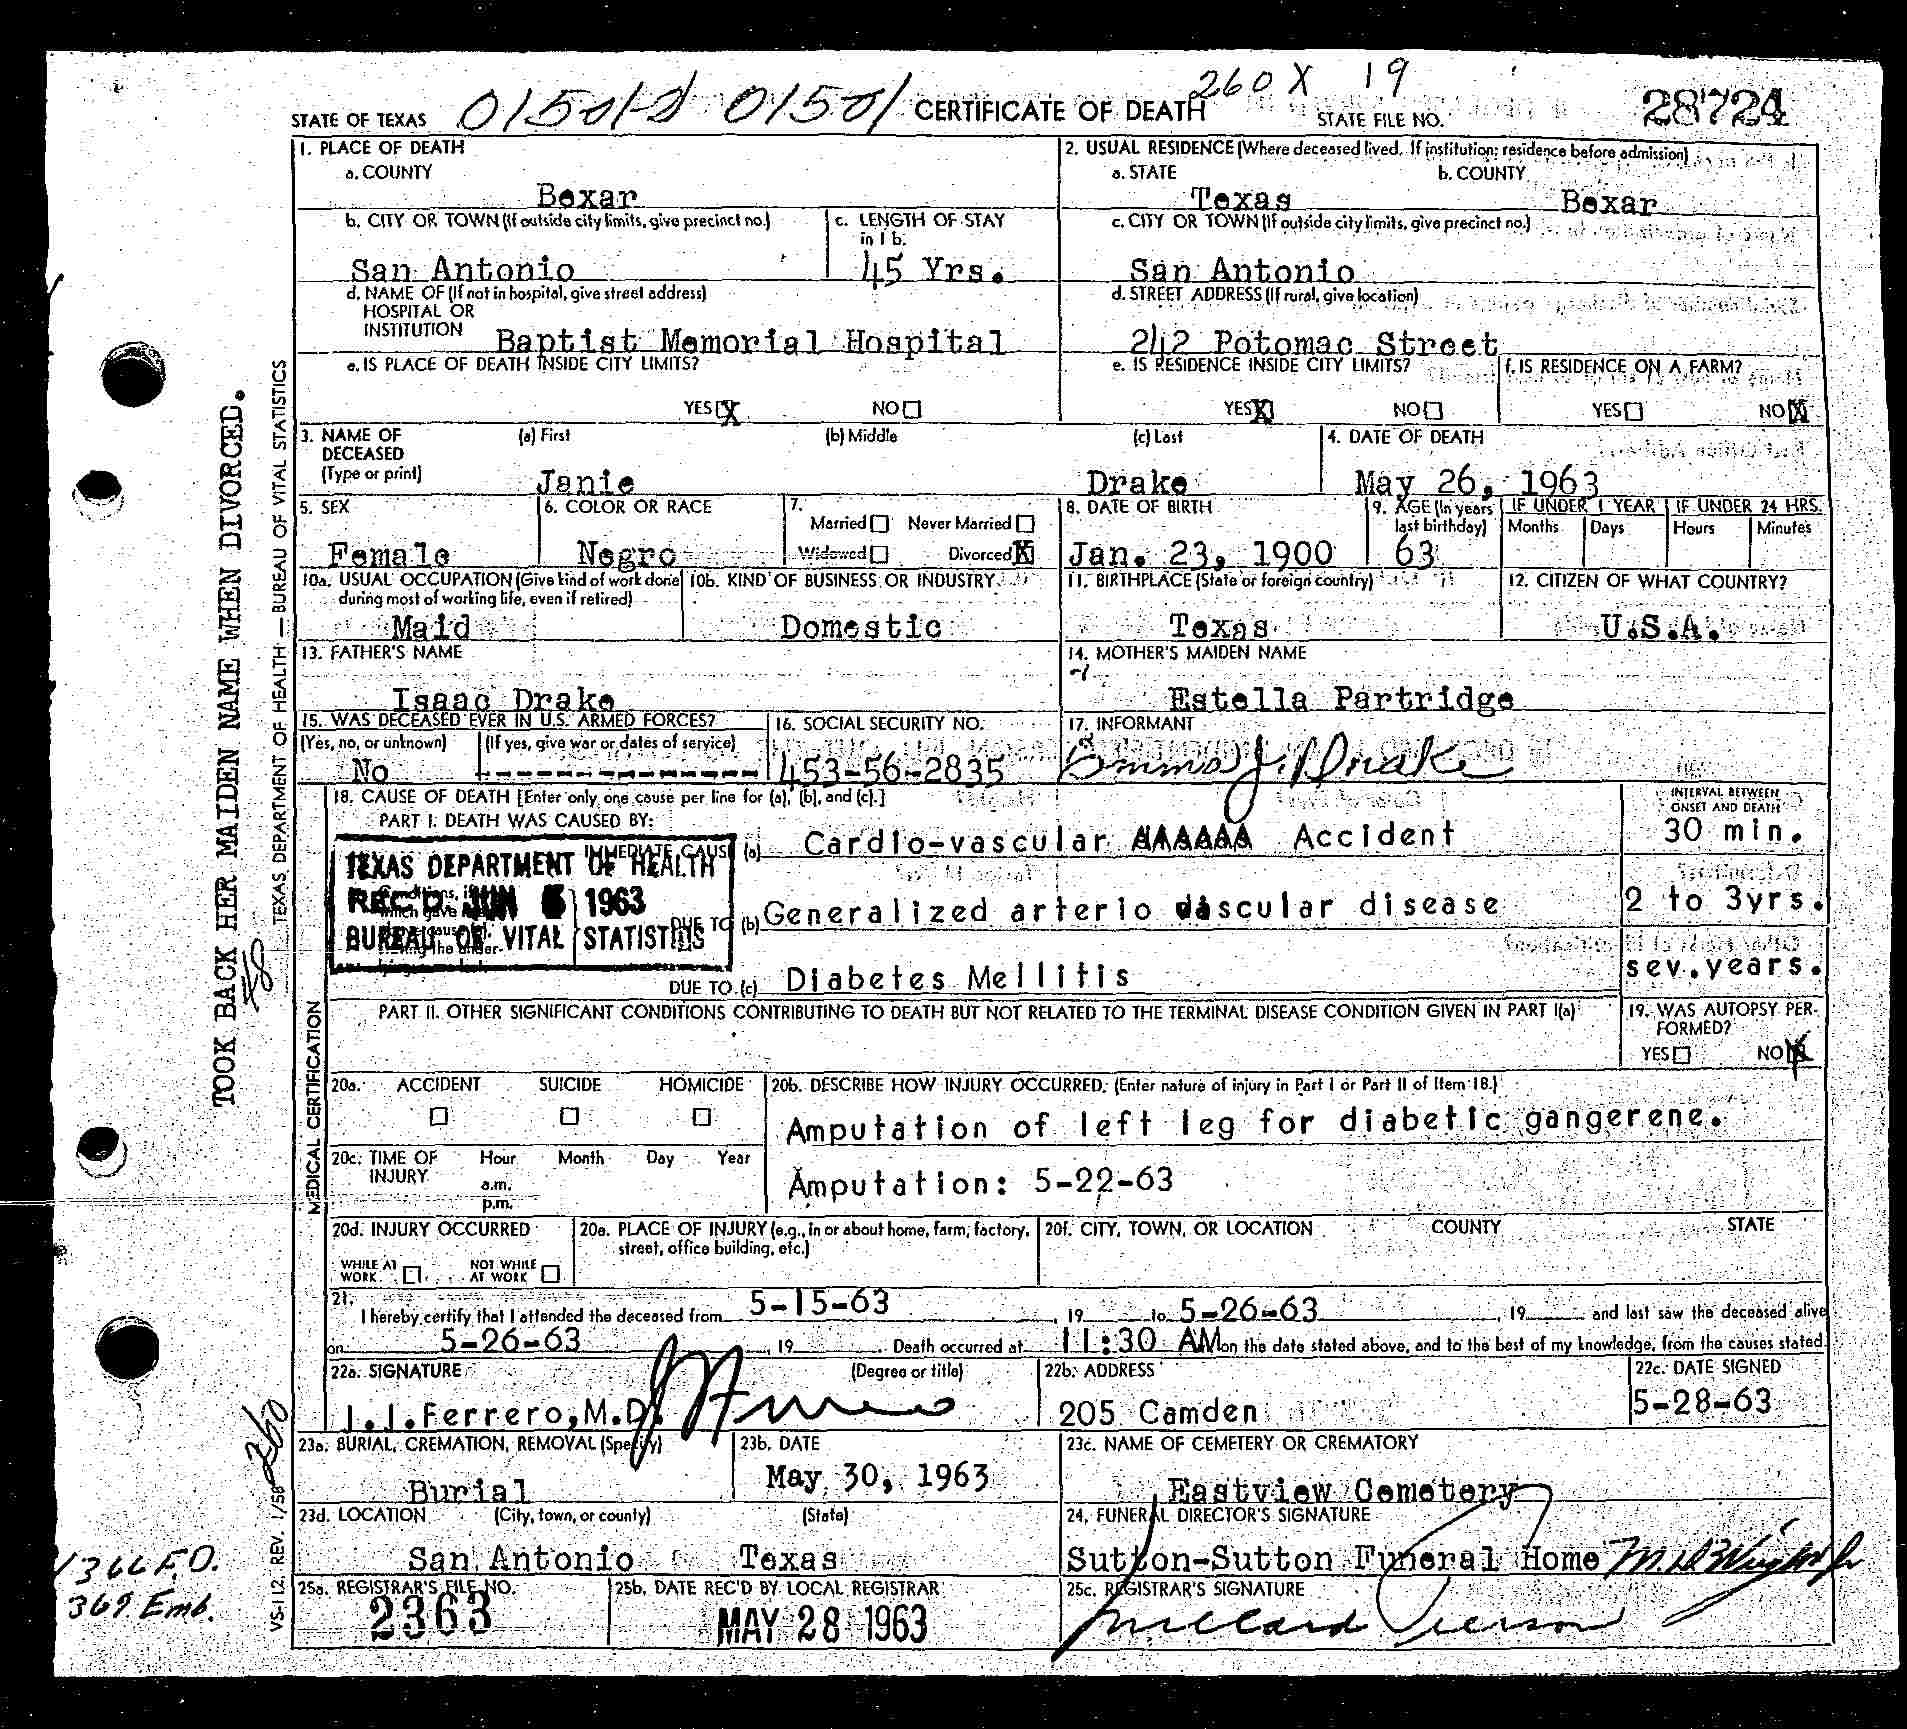 260 X 19
STATE OF TEXAS 01501-2 01501 CERTIFICATE OF DEATH STATE FILE NO. 28724
1. PLACE OF DEATH
a. COUNTY
Bexar
2. USUAL RESIDENCE (Where deceased lived. If institution: residence before admission)
a. STATE b. COUNTY
Texas Bexar
b. CITY OR TOWN (If outside city limits, give precinct no.)
San Antonio
c. LENGTH OF STAY
in 1 b.
45 Yrs.
c. CITY OR TOWN (If outside city limits, give precinct no.)
San Antonio
d. NAME OF (If not in hospital, give street address)
HOSPITAL OR
INSTITUTION Baptist Memorial Hospital
d. STREET ADDRESS (If rural, give location)
242 Potomac Street
e. IS PLACE OF DEATH INSIDE CITY LIMITS?
YES X NO
e. IS RESIDENCE INSIDE CITY LIMITS?
YES X NO
f. IS RESIDENCE ON A FARM?
YES NO X
3. NAME OF DECEASED (Type or print)
(a) First (b) Middle (c) Last
Janie Drake
4. DATE OF DEATH
May 26, 1963
5. SEX
Female
6. COLOR OR RACE
Negro
7.
Married Never Married
Widowed Divorced X
8. DATE OF BIRTH
Jan. 23, 1900
9. AGE (In years last birthday)
63
IF UNDER 1 YEAR
Months Days
IF UNDER 24 HRS.
Hours Minutes
10a. USUAL OCCUPATION (Give kind of work done
during most of working life, even if retired)
Maid
10b. KIND OF BUSINESS OR INDUSTRY
Domestic
11. BIRTHPLACE (State or foreign country)
Texas
12. CITIZEN OF WHAT COUNTRY?
U.S.A.
13. FATHER'S NAME
Isaac Drake
14. MOTHER'S MAIDEN NAME
Estella Partridge
15. WAS DECEASED EVER IN U.S. ARMED FORCES?
(Yes, no, or unknown) (If yes, give war or dates of service)
No ---------------
16. SOCIAL SECURITY NO.
453-56-2835
17. INFORMANT
Emma J. Drake
MEDICAL CERTIFICATION
18. CAUSE OF DEATH [Enter only one cause per line for (a), (b), and (c).]
PART I. DEATH WAS CAUSED BY:
INTERVAL BETWEEN
ONSET AND DEATH
IMMEDIATE CAUSE (a) Cardio-vascular AAAAAA Accident
30 min.
TEXAS DEPARTMENT OF HEALTH
REC'D JUN 1963
BUREAU OF VITAL STATISTICS
DUE TO (b) Generalized arterio vascular disease
2 to 3yrs.
DUE TO (c) Diabetes Mellitis
sev.years.
PART II. OTHER SIGNIFICANT CONDITIONS CONTRIBUTING TO DEATH BUT NOT RELATED TO THE TERMINAL DISEASE CONDITION GIVEN IN PART I(a)
19. WAS AUTOPSY PERFORMED?
YES NO X
20a. ACCIDENT SUICIDE HOMICIDE
20b. DESCRIBE HOW INJURY OCCURRED. (Enter nature of injury in Part I or Part II of Item 18.)
Amputation of left leg for diabetic gangerene.
20c. TIME OF INJURY Hour Month Day Year
a.m.
p.m.
Amputation: 5-22-63
20d. INJURY OCCURRED
WHILE AT WORK NOT WHILE AT WORK
20e. PLACE OF INJURY (e.g., in or about home, farm, factory,
street, office building, etc.)
20f. CITY, TOWN, OR LOCATION COUNTY STATE
21.
I hereby certify that I attended the deceased from 5-15-63, 19 to 5-26-63, 19 and last saw the deceased alive
on 5-26-63, 19 Death occurred at 11:30 AM on the date stated above, and to the best of my knowledge, from the causes stated.
22a. SIGNATURE (Degree or title)
J.J.Ferrero,M.D.
22b. ADDRESS
205 Camden
22c. DATE SIGNED
5-28-63
23a. BURIAL, CREMATION, REMOVAL (Specify)
Burial
23b. DATE
May 30, 1963
23c. NAME OF CEMETERY OR CREMATORY
Eastview Cemetery
23d. LOCATION (City, town, or county) (State)
San Antonio Texas
24. FUNERAL DIRECTOR'S SIGNATURE
Sutton-Sutton Funeral Home
25a. REGISTRAR'S FILE NO.
2363
25b. DATE REC'D BY LOCAL REGISTRAR
MAY 28 1963
25c. REGISTRAR'S SIGNATURE
Millard Pierson
TOOK BACK HER MAIDEN NAME WHEN DIVORCED.
TEXAS DEPARTMENT OF HEALTH — BUREAU OF VITAL STATISTICS
VS-112 REV. 1/58
260
1366 F.D.
369 Emb.